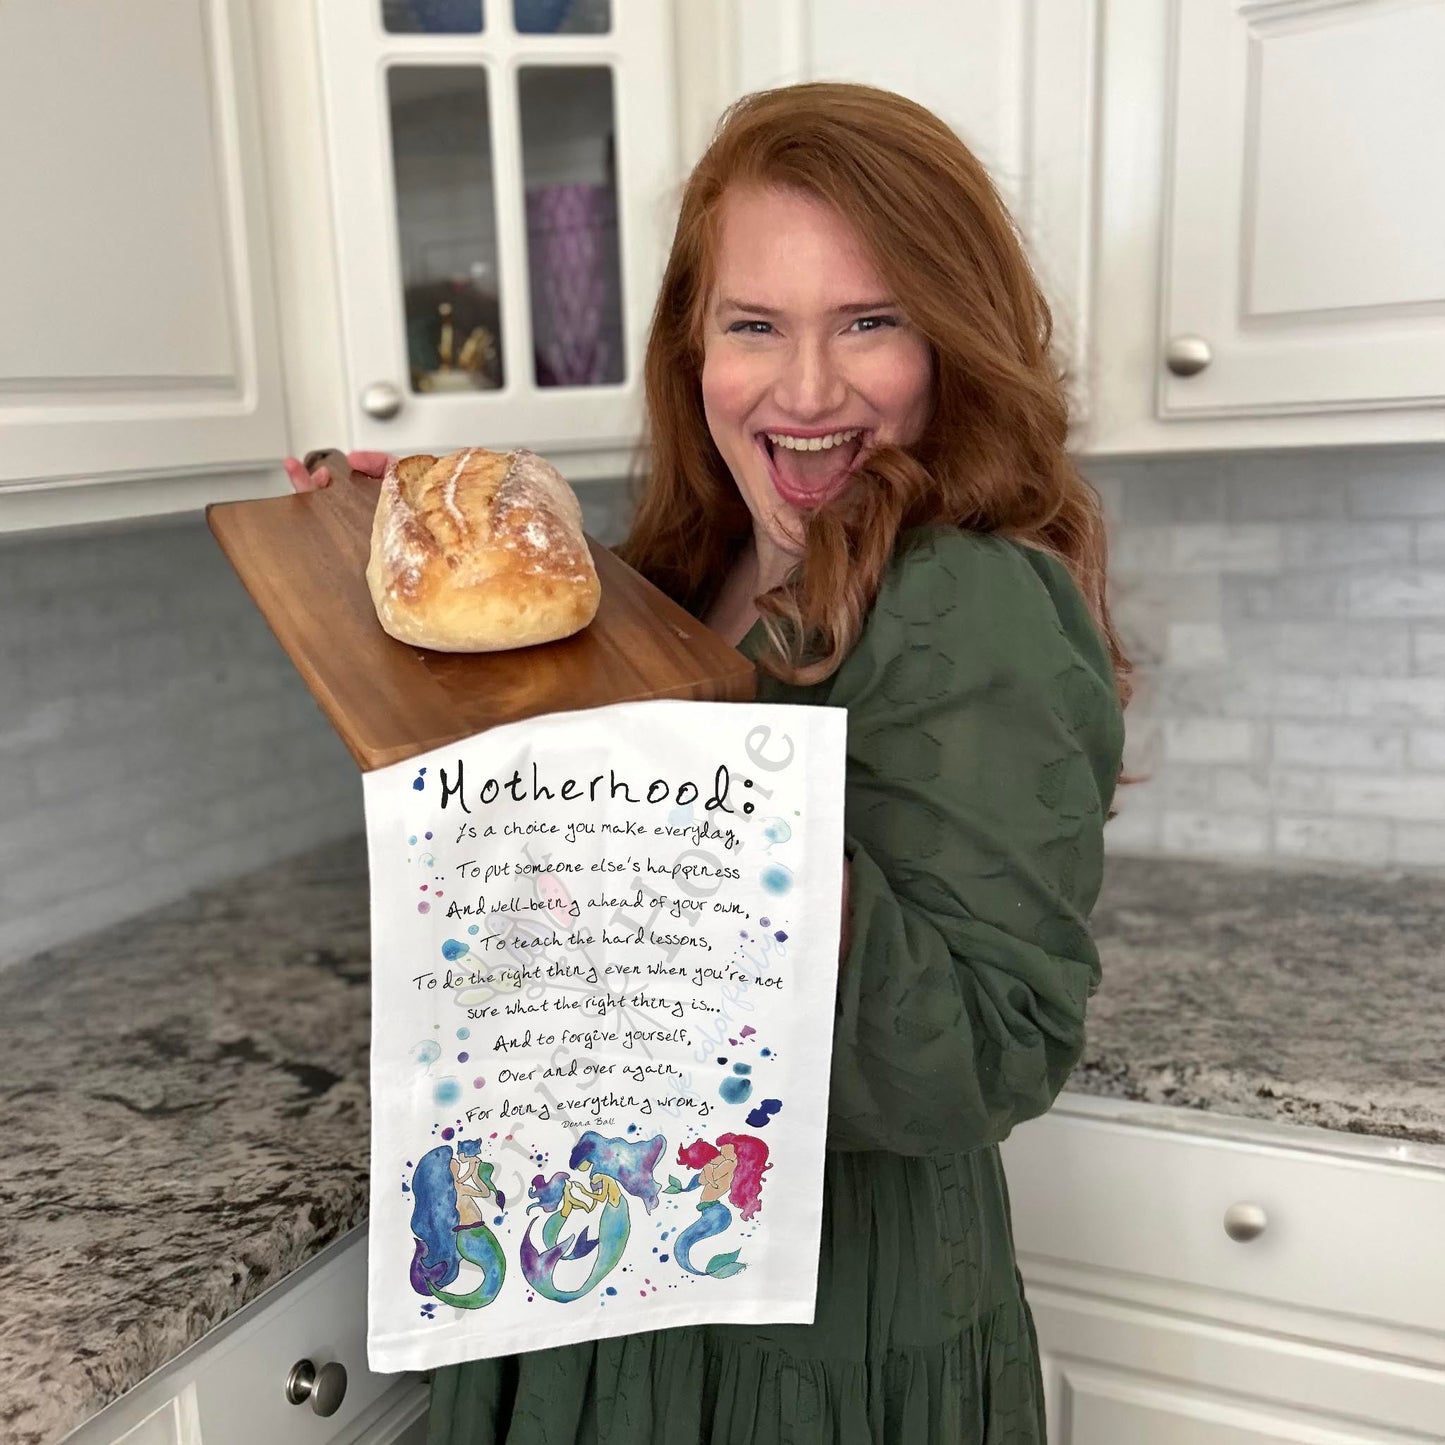 Motherhood:
Is a choice you make everyday,
To put someone else's happiness
And well-being ahead of your own,
To teach the hard lessons,
To do the right thing even when you're not
sure what the right thing is...
And to forgive yourself,
Over and over again,
For doing everything wrong.
Donna Ball
Home